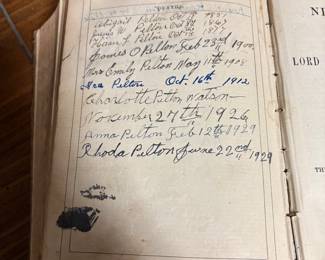 DEATHS
Abigail Pelton Oct
W Pelton Oct 1867
Pelton Oct 1877
James O Pelton Feb 23rd 1900
Mrs Emily Pelton May 11th 1908
Pelton Oct. 16th 1912
Charlotte Pelton Watson
November 27th 1926
Anna Pelton Feb 12th 1929
Rhoda Pelton June 22nd 1929
LORD